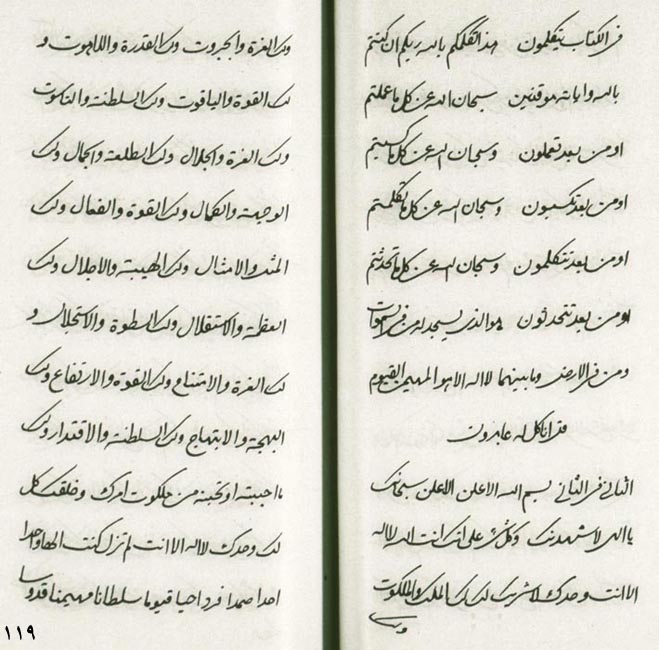 في الكتاب يتكلمون هذا تكلمكم بالله ربكم ان كنتم
بالله واياته موقنين سبحان الله عن كل ما عملتم
او من بعد تعملون وسبحان الله عن كل ما كسبتم
او من بعد تكسبون وسبحان الله عن كل ما تكلمتم
او من بعد تتكلمون وسبحان الله عن كل ما تحدثتم
او من بعد تتحدثون هو الذي يسجد له من في السموات
ومن في الارض وما بينهما لا اله الا هو المهيمن القيوم
قل انا كل له عابدون
الثاني في الثاني بسم الله الاعلن الاعلن سبحانك
يا الهي لاشهدنك وكل شيء على انك انت الله لا اله
الا انت وحدك لا شريك لك لك الملك والملكوت
ولك
ولك العزة والجبروت ولك القدرة واللاهوت و
لك القوة والياقوت ولك السلطنة والناسوت
ولك العزة والجلال ولك الطلعة والجمال ولك
الوجهة والكمال ولك القوة والفعال ولك
المثل والامثال ولك الهيبة والاجلال ولك
العظمة والاستقلال ولك السطوة والاستجلال و
لك العزة والامتناع ولك القوة والارتفاع ولك
البهجة والابتهاج ولك السلطنة والاقتدار ولك
ما احببته او تحبنه من ملكوت امرك وخلقك كل
لك وحدك لا اله الا انت لم تزل كنت الها واحدا
احدا صمدا فردا حيا قيوما سلطانا مهيمنا قدوسا
١١٩